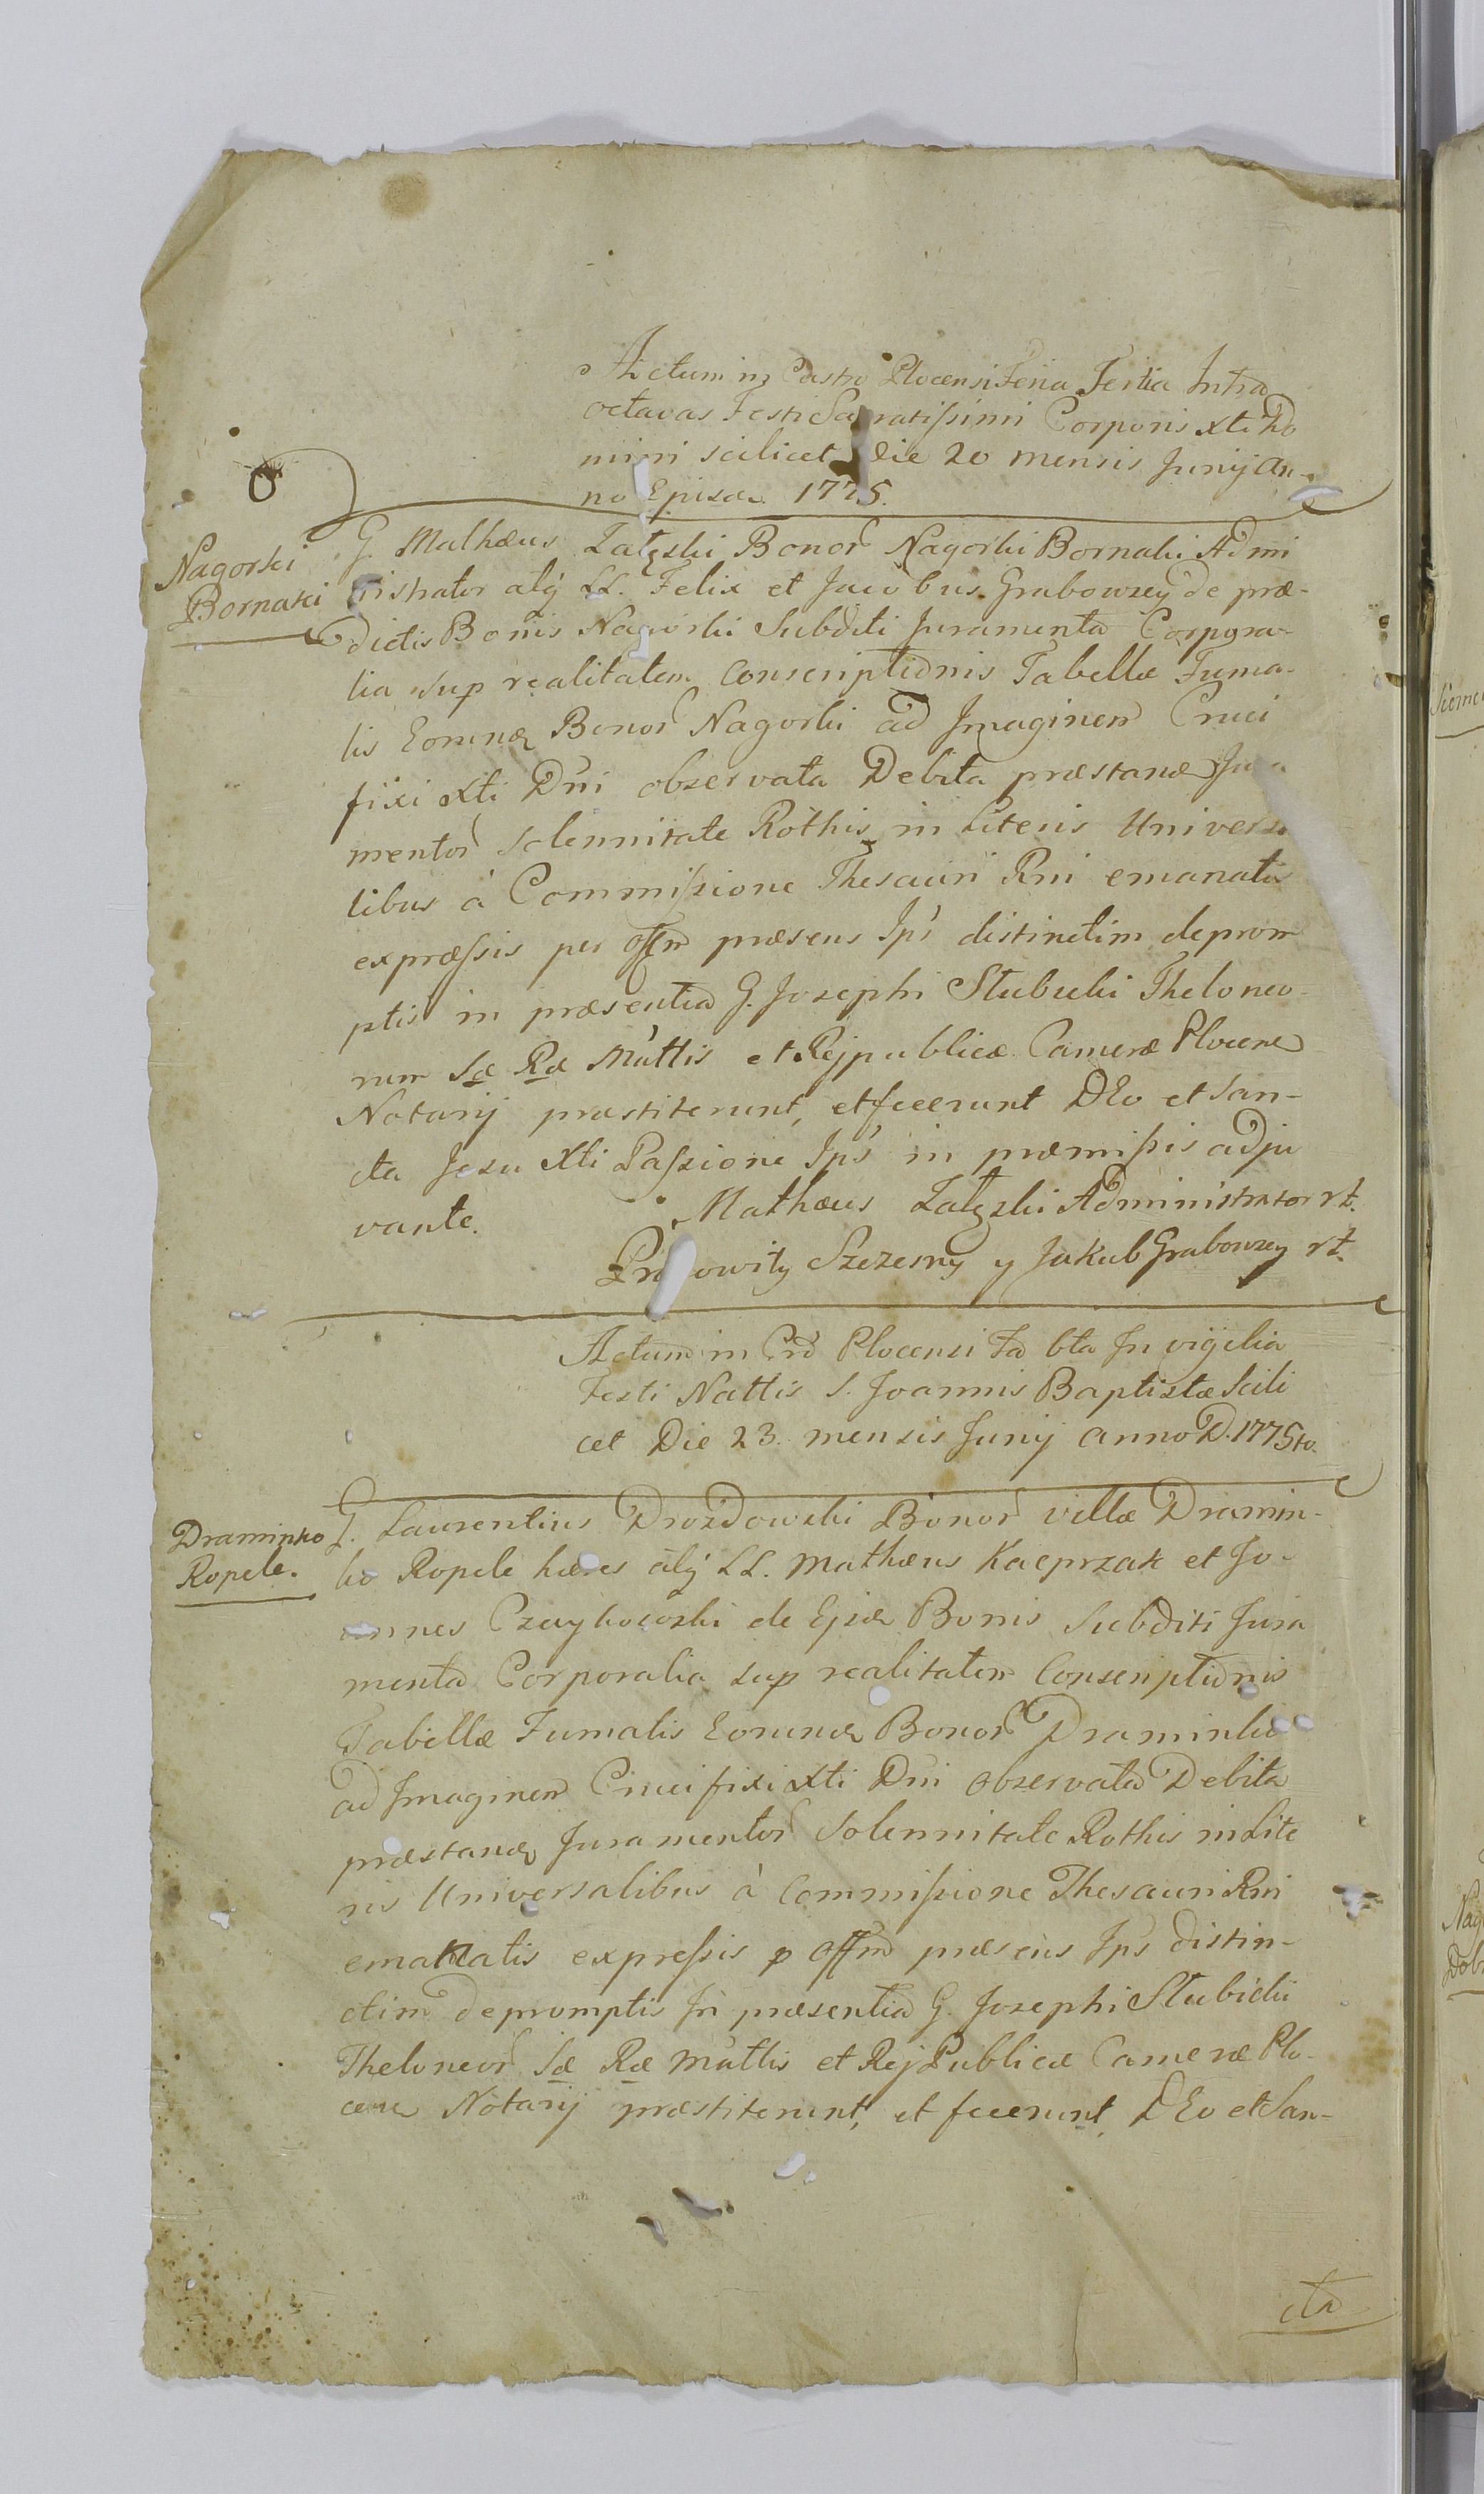 Actum in Castro Plocensi Feria Tertia Intra
octavas Festi Sacratissimi Corporis Xti Do
mini scilicet Die 20 mensis Junij An-
no 1775.
Nagorki
Bornaki
G. Mathæus Bonor Nagorki Bornaki Admi
nistrator atq LL. Felix et Jacobus Grabowzey de præ-
dictis Bonis Nagorki Subditi Juramenta Corpora-
lia sup realitatem Conscriptionis Tabellæ Fuma-
lis Eorund Bonor Nagorki ad Imaginem Cruci
fixi Xti Dni observata Debita præstand Jura
mentor Solennitate Rothis in Literis Universa
libus à Commissione Thesauri Rni emanatis
expræssis per Offm præsens Ips distinctim deprom
ptis in præsentia G. Josephi Stubicki Theloneo-
rum Sæ Ræ Mattis et Rejpublicæ Cameræ Plocens
Notarij præstiterunt, et fecerunt DEo et San-
cta Jesu Xti Passione Ips in præmissis adju
vante.
Mathæus Administrator rt.
Szczesny y Jakub Grabowzey rt.
Actum in Crd Plocensi Fa 6ta In vigilia
Festi Nattis S. Joannis Baptistæ Scili
cet Die 23 mensis Junij Anno D. 1775to.
Draminko
Ropele.
G. Laurentius Drozdowski Bonor villæ Dramin-
ko Ropele hæres atq LL. Mathæus Kacprzak et Jo-
annes Czaykowski de Ejsd Bonis Subditi Jura
menta Corporalia sup realitatem Conscriptionis
Tabellæ Fumalis Eorund Bonor Draminko
ad Imaginem Crucifixi Xti Dni Observata Debita
præstand Juramentor Solennitate Rothis in Lite
ris Universalibus à Commissione Thesauri Rni
emanatis expressis p Offm præsens Ips distin-
ctim depromptis In præsentia G. Josephi Stubicki
Theloneor Sæ Ræ Mattis et RejPublicæ Cameræ Plo-
cens Notarij præstiterunt, et fecerunt, DEo et San-
cta